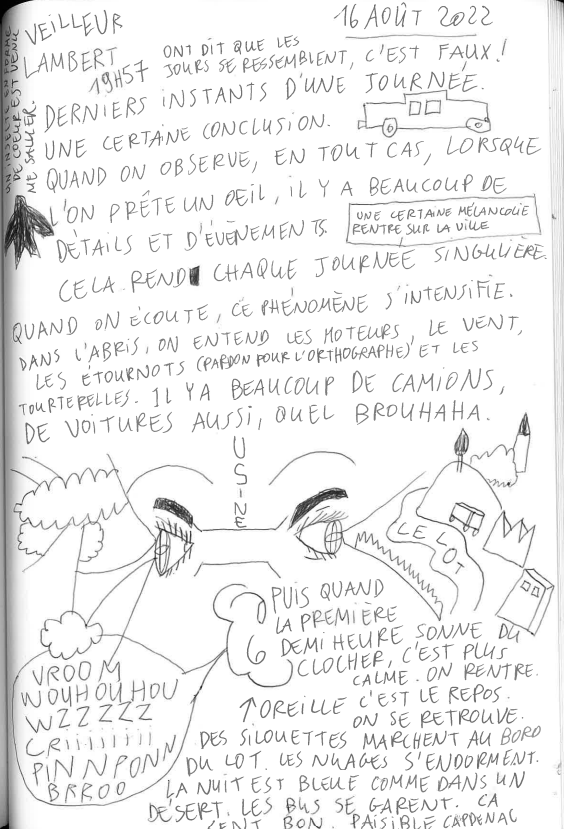 VEILLEUR
LAMBERT
19H57
16 AOÛT 2022
UN INSECTE EN FORME
DE COEUR EST VENU
ME SALUER.
ONT DIT QUE LES
JOURS SE RESSEMBLENT, C'EST FAUX!
DERNIERS INSTANTS D'UNE JOURNÉE.
UNE CERTAINE CONCLUSION.
QUAND ON OBSERVE, EN TOUT CAS, LORSQUE
L'ON PRÊTE UN OEIL, IL Y A BEAUCOUP DE
DÉTAILS ET D'ÉVÈNEMENTS.
UNE CERTAINE MÉLANCOLIE
RENTRE SUR LA VILLE
CELA REND CHAQUE JOURNÉE SINGULIÈRE.
QUAND ON ÉCOUTE, CE PHÉNOMÈNE S'INTENSIFIE.
DANS L'ABRIS, ON ENTEND LES MOTEURS, LE VENT,
LES ÉTOURNOTS (PARDON POUR L'ORTHOGRAPHE) ET LES
TOURTERELLES. IL Y A BEAUCOUP DE CAMIONS,
DE VOITURES AUSSI, QUEL BROUHAHA.
USINE
LE LOT
VROOM
WOUHOUHOU
WZZZZZ
CRiiiiiiii
PINNPONN
BRROO
PUIS QUAND
LA PREMIÈRE
DEMI HEURE SONNE DU
CLOCHER, C'EST PLUS
CALME. ON RENTRE.
↑OREILLE C'EST LE REPOS.
ON SE RETROUVE.
DES SILOUETTES MARCHENT AU BORD
DU LOT. LES NUAGES S'ENDORMENT.
LA NUIT EST BLEUE COMME DANS UN
DÉSERT. LES BUS SE GARENT. CA
SENT BON. PAISIBLE CAPDENAC